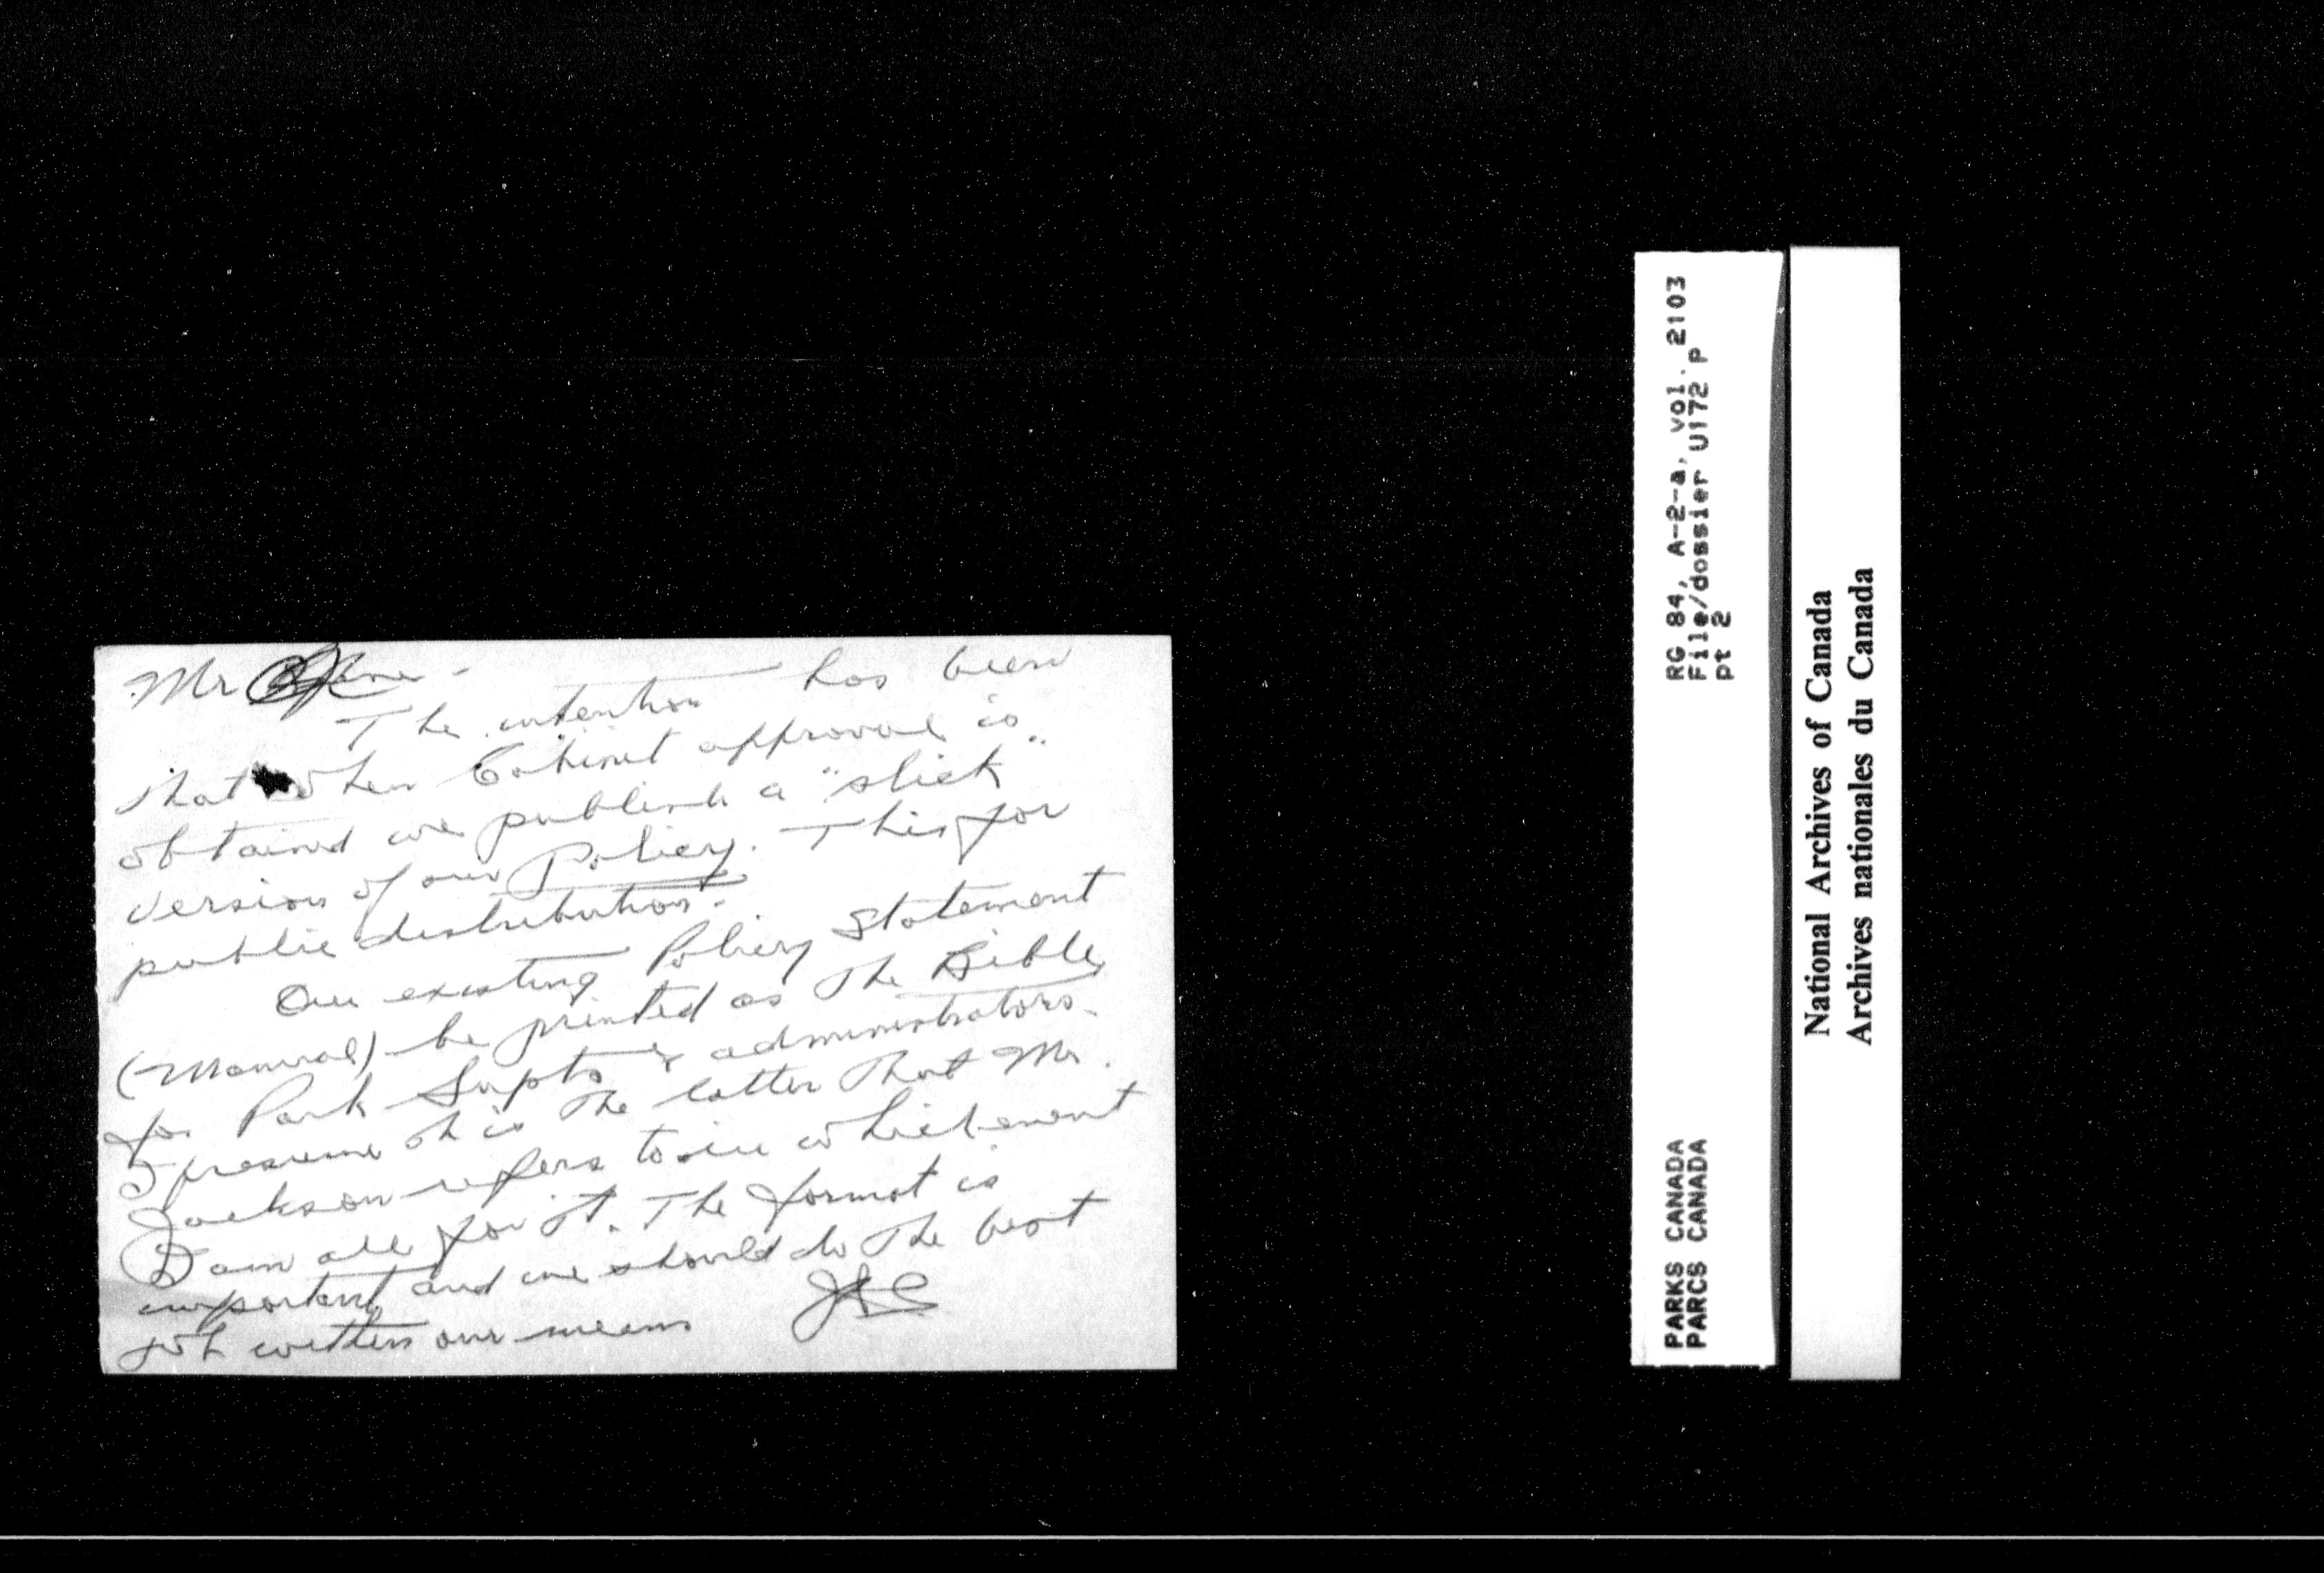 Mr
The intention has been
that when Cabinet approval is
obtained we publish a "slick"
version of our Policy. This for
public distribution.
Our existing Policy Statement
(Manual) be printed as The Bible
for Park Supts & administrators.
I presume it is the latter that Mr.
Jackson refers to in which event
I am all for it. The format is
important and we should do the best
job within our means
RG 84, A-2-a, vol. 2103
File/dossier U172 P
pt 2
PARKS CANADA
PARCS CANADA
National Archives of Canada
Archives nationales du Canada